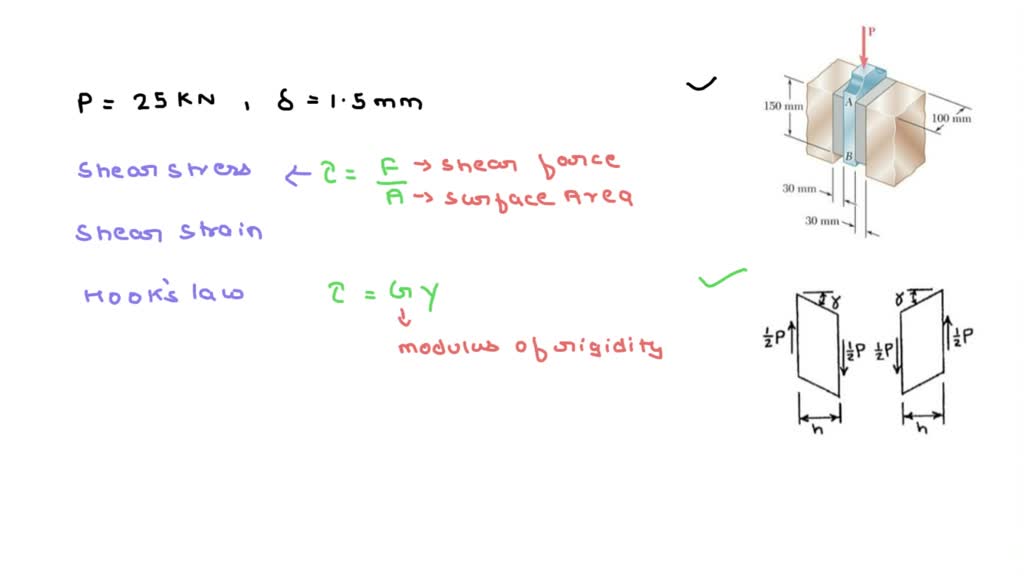 P = 25 KN , δ = 1.5 mm
Shear stress ← τ = F/A → shear force
→ surface Area
Shear strain
Hook's law τ = G γ
↓
modulus of rigidity
P
150 mm
A
100 mm
B
30 mm
30 mm
γ γ
½P ½P ½P ½P
h h